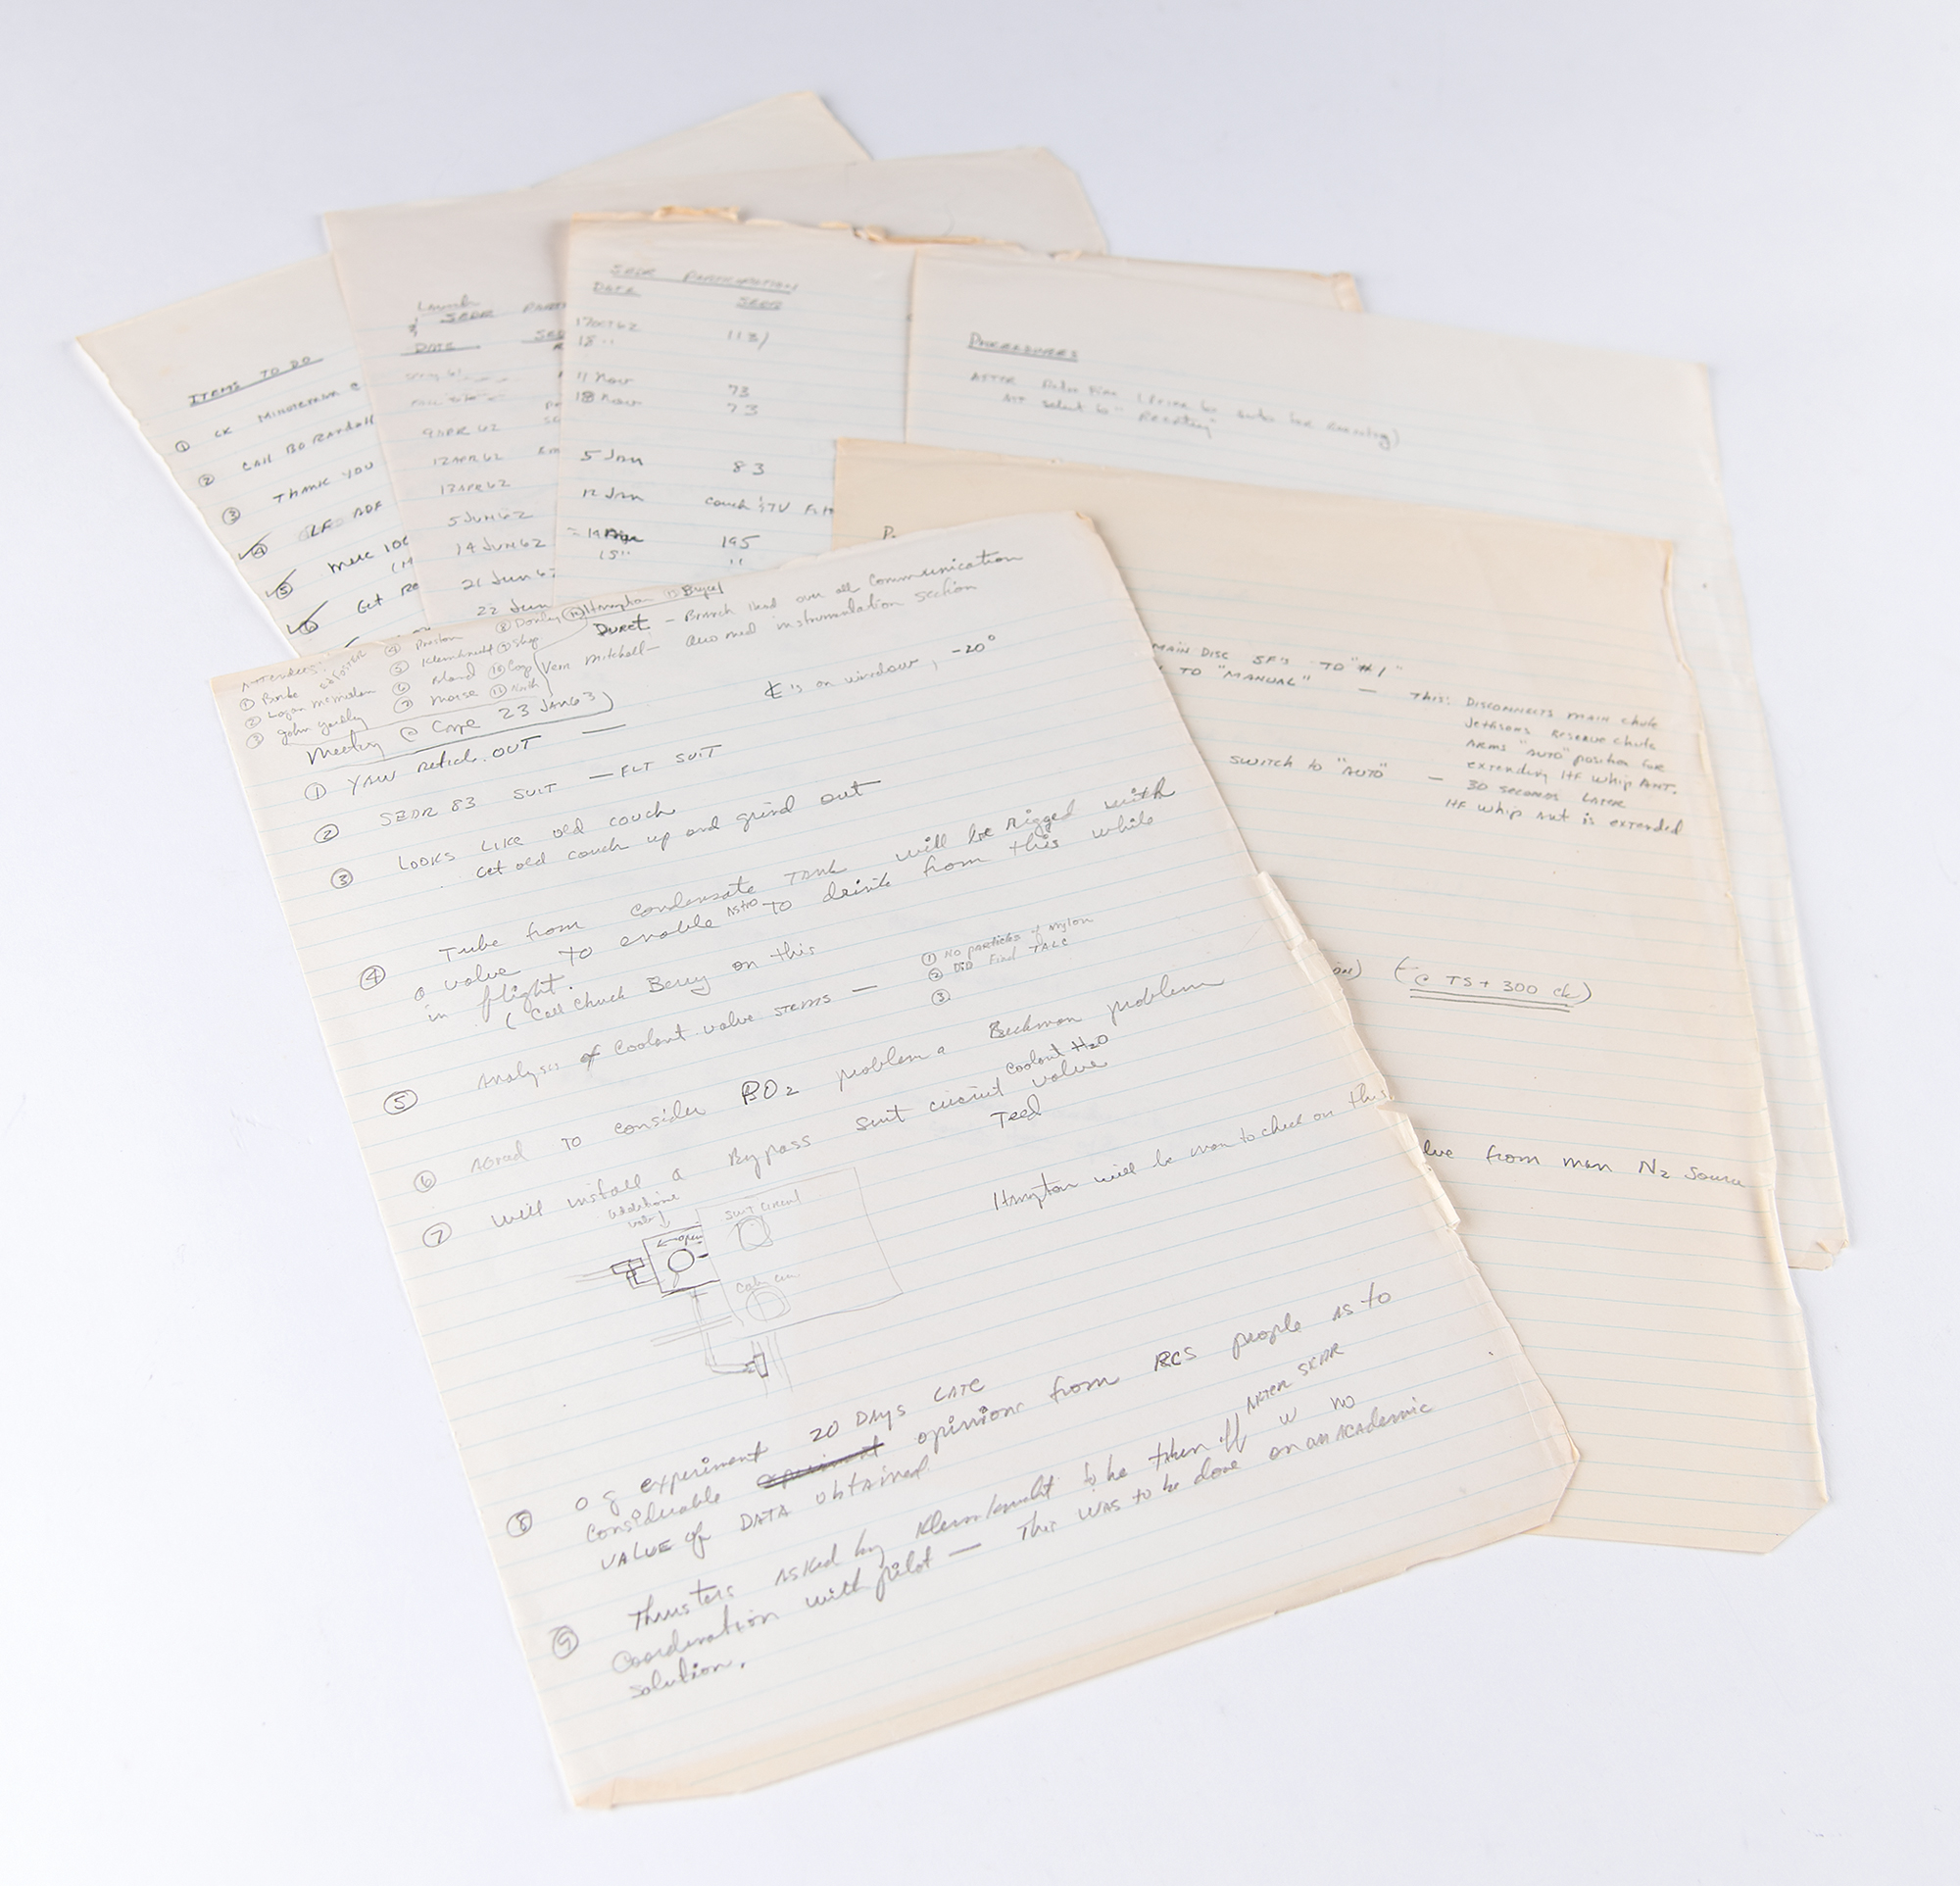 ITEMS TO DO
① CK MINUTEMAN
② CALL BO RANDALL
③ THANK YOU
④ LF ADF
⑤ MERC
⑥ Get
Launch
& SEDR PARTI
DATE
9 APR 62
12 APR 62
13 APR 62
5 JUN 62
14 JUN 62
21 Jun 62
22 Jun
SEDR PARTICIPATION
DATE SEDR
17 OCT 62 113/
18 "
11 Nov 73
18 Nov 73
5 Jan 83
12 Jan Couch & TV
195
15 " "
PROCEDURES
AFTER
select to "Reentry"
MAIN DISC SF'S TO "#1"
TO "MANUAL" — This: DISCONNECTS MAIN chute
Jettisons Reserve chute
ARMS "AUTO" position for
extending HF whip ANT.
SWITCH to "AUTO" — 30 SECONDS LATER
HF whip ant is extended
(@ TS + 300 ck)
from man N2 Source
Attendees:
① Bonbe
② Logan McMillan
③ John Yardley
④ Preston
⑤ Kleinknecht
⑥ Bland
⑦ Morse
⑧ Donley
⑨ Shep
⑩ Coop
⑪ North
DURET – Branch Head over all Communication
Vern Mitchell – Also med instrumentation section
Meeting @ Cape 23 JAN 63
① YAW reticle OUT — ₵'s on window, -20°
② SEDR 83 SUIT — FLT SUIT
③ LOOKS LIKE old couch
Get old couch up and grind out
④ Tube from condensate TANK will be rigged with
a valve to enable ASTRO to drink from this while
in flight.
(Call Chuck Berry on this
⑤ Analysis of coolant valve stems — ① No particles of nylon
② DID Find TALC
③
⑥ AGreed TO consider PO2 problem a Beckman problem
⑦ Will install a Bypass suit circuit coolant H2O valve
Teed
Additional valve
←open
Suit circuit
Hampton will be man to check on this
⑧ 0 g experiment 20 DAYS LATE
Considerable experiment opinions from RCS people AS to
VALUE of DATA obtained
⑨ Thrusters ASKed by Kleinknecht to be taken off AFTER SEDR w no
Coordination with pilot — This WAS to be done on an ACAdemic
solution.